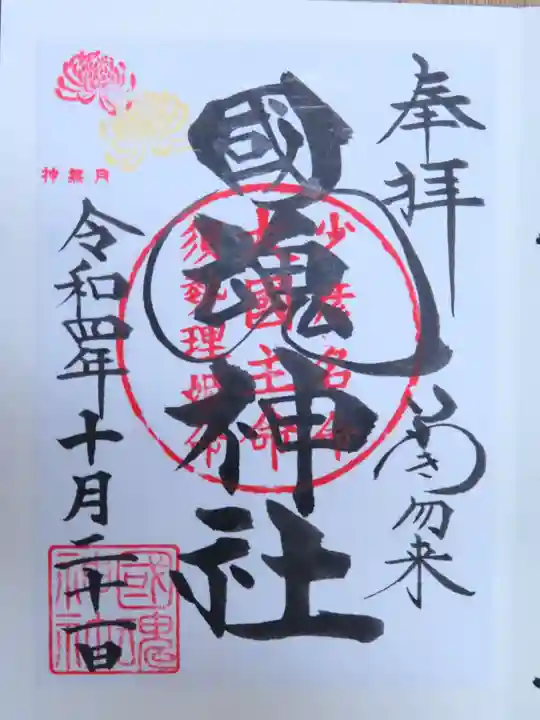 奉拝
いわき勿来
國魂神社
少彦名命
大國主命
須勢理姫命
神無月
令和四年十月二十一日
國魂神社